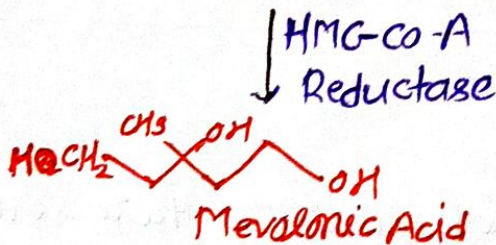 HMG-CO-A
Reductase
CH3 OH
HOCH2
OH
Mevalonic Acid